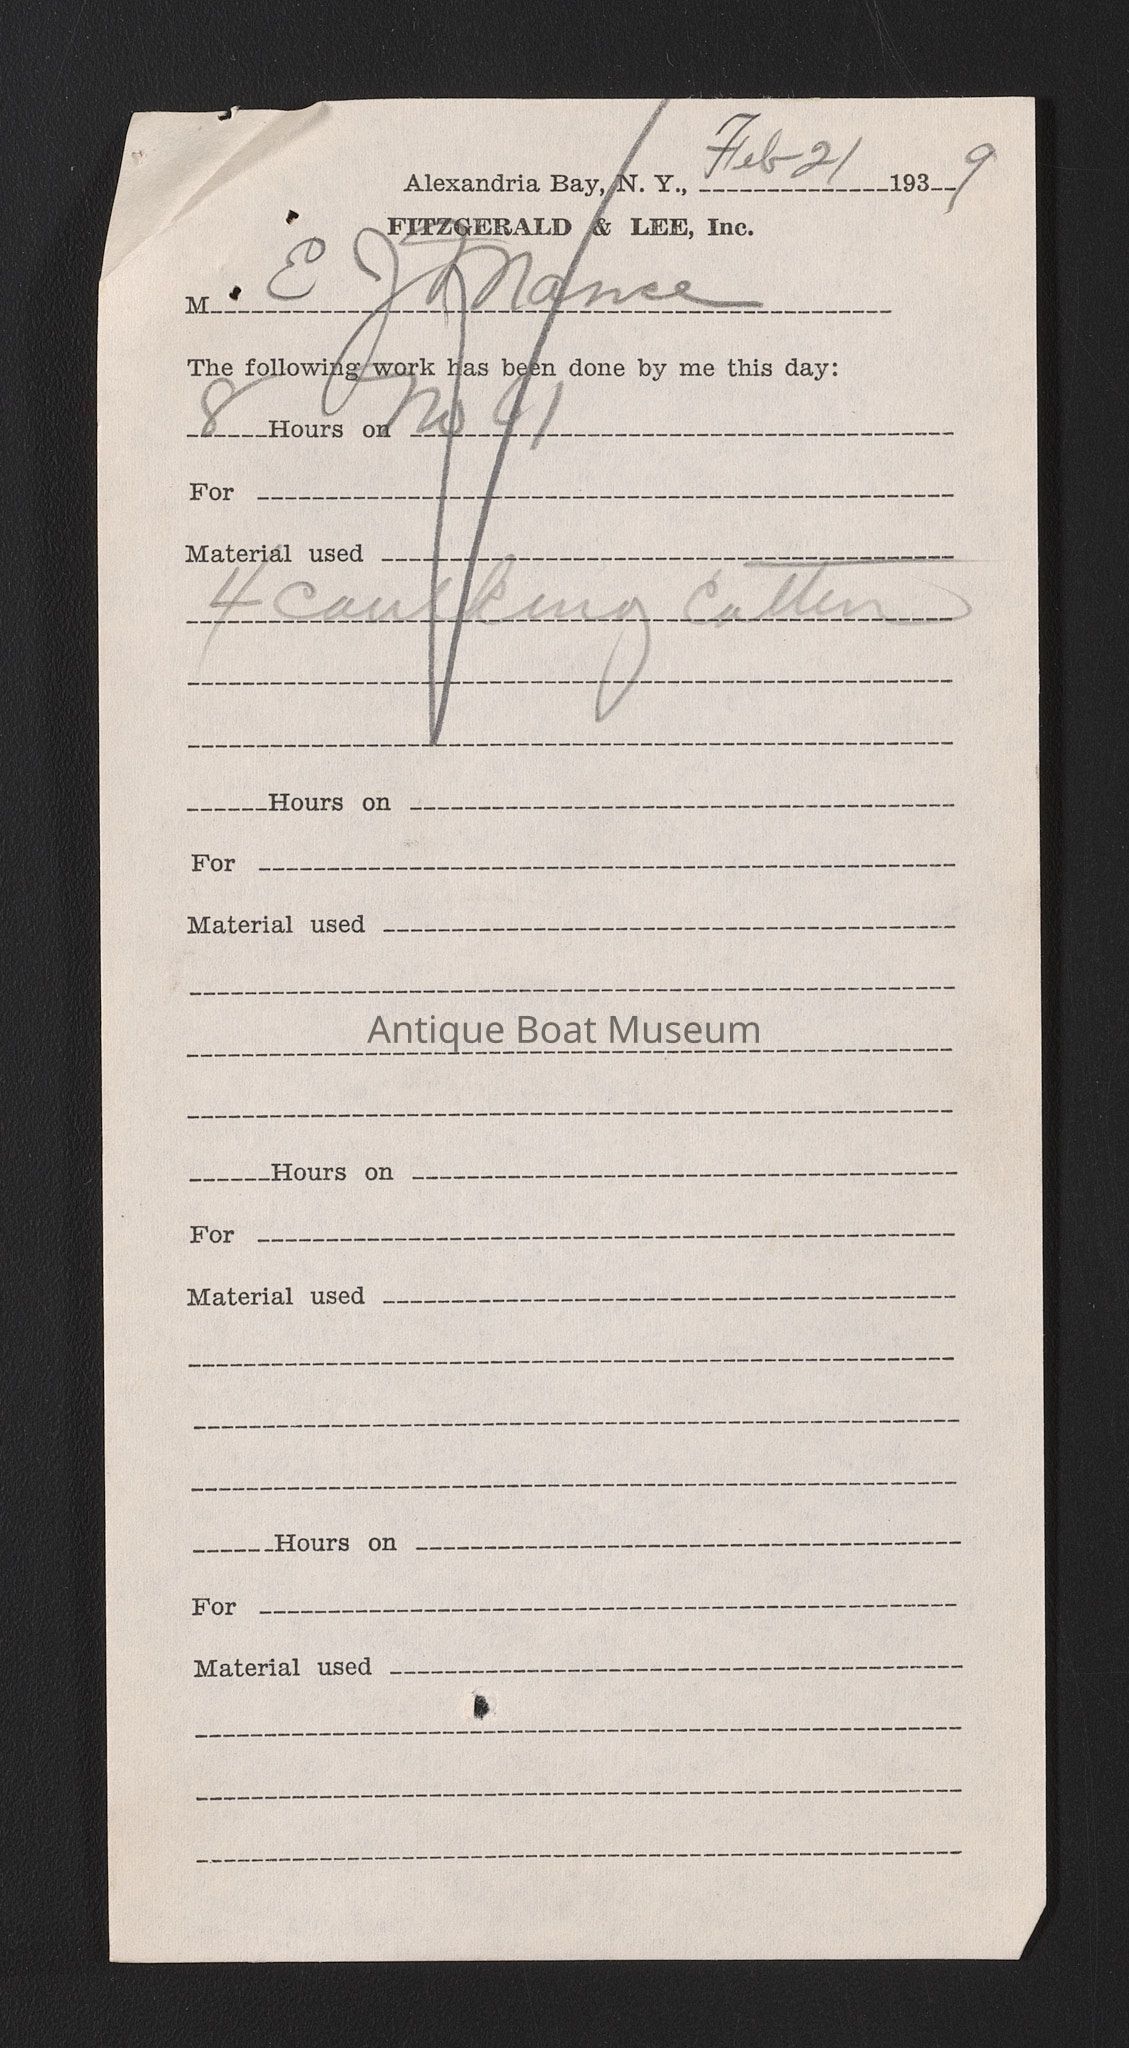 Alexandria Bay, N. Y., Feb 21 1939
FITZGERALD & LEE, Inc.
M E J Nance
The following work has been done by me this day:
8 Hours on No 41
For
Material used
4 caulking cotten
Hours on
For
Material used
Antique Boat Museum
Hours on
For
Material used
Hours on
For
Material used